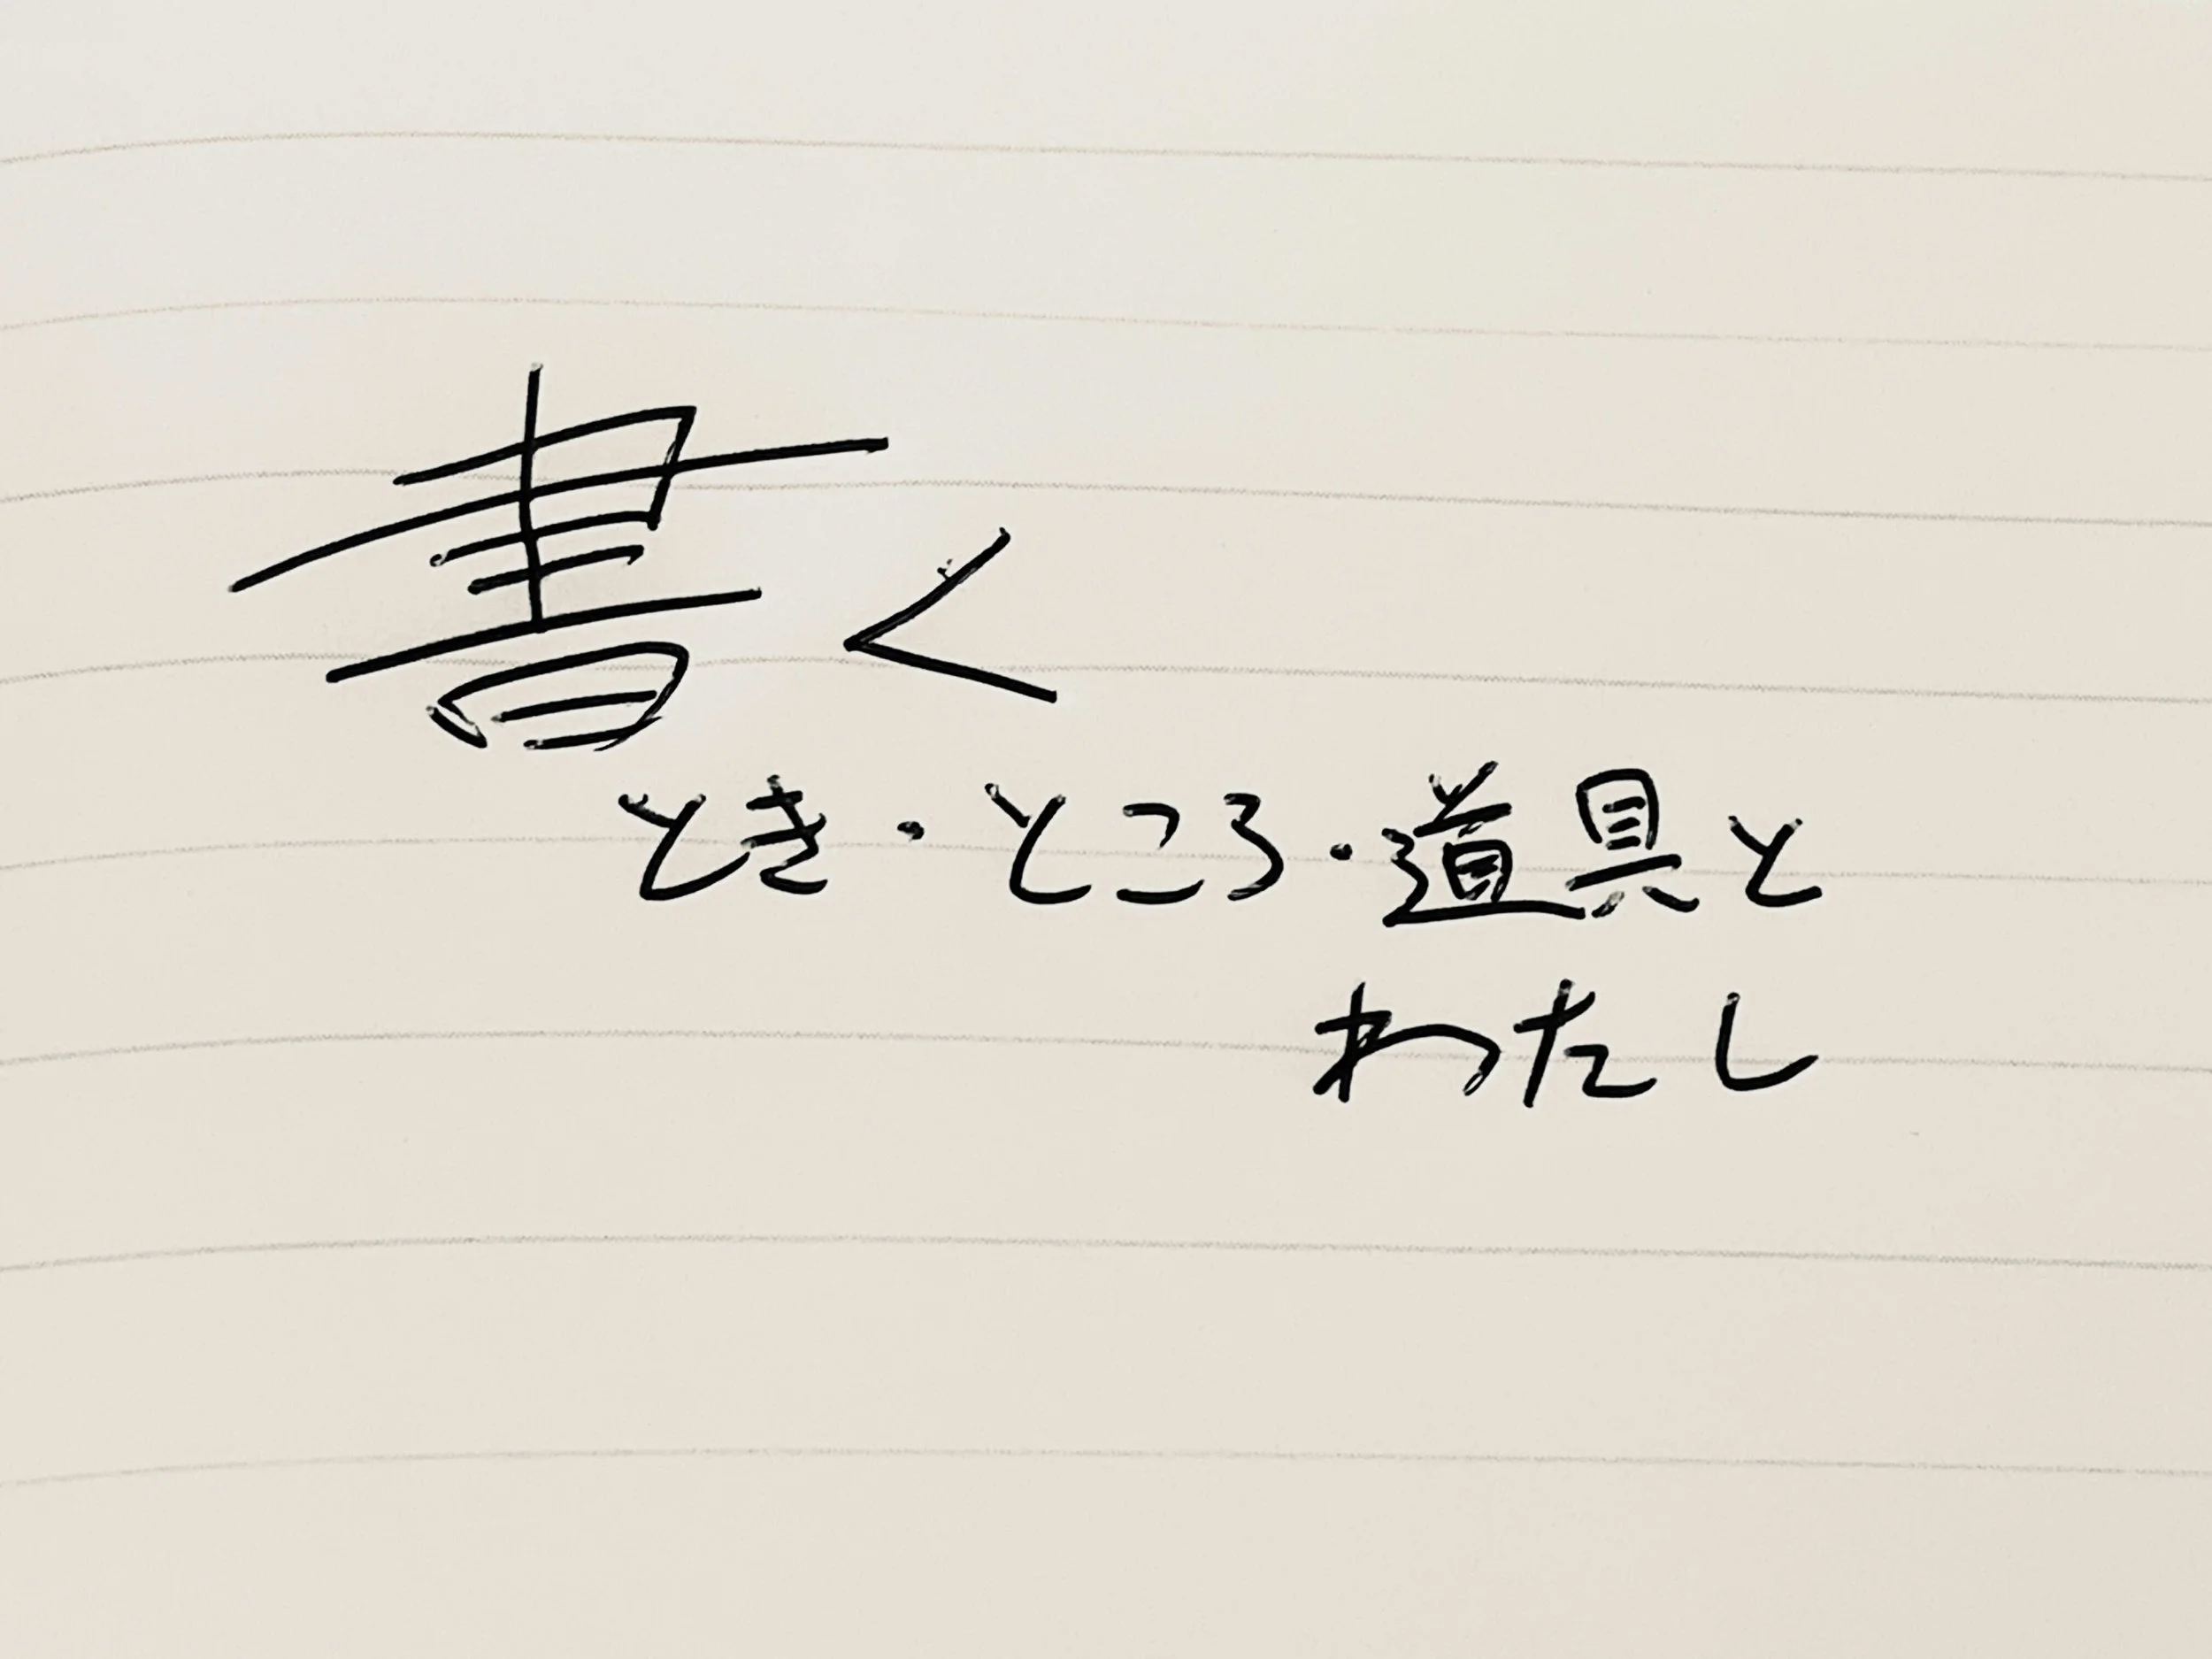 書く
とき・ところ・道具と
わたし